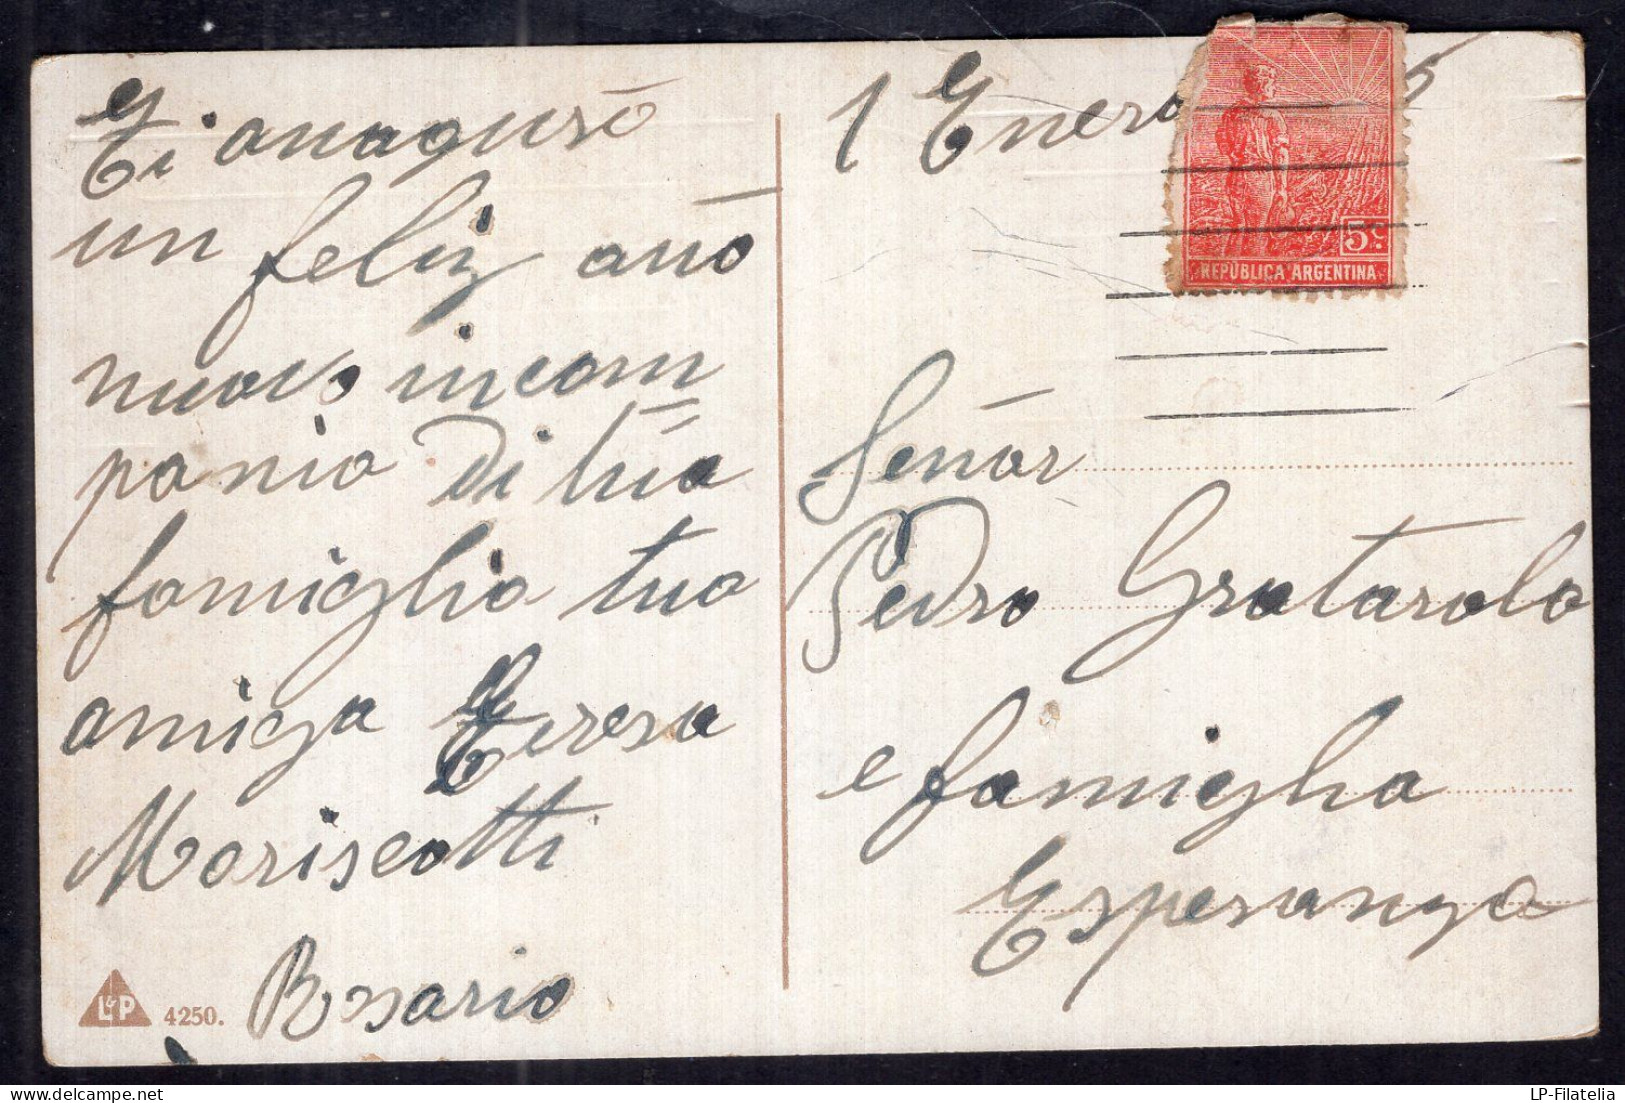 Ti anaguro
un feliz año
nuovo in com
pania Di tua
famiglia tua
amiga Teresa
Moriscotti
Rosario
L&P 4250.
1 Enero
5 C
REPÚBLICA ARGENTINA
Señor
Pedro Gratarola
e famiglia
Esperanza
LP-Filatelia